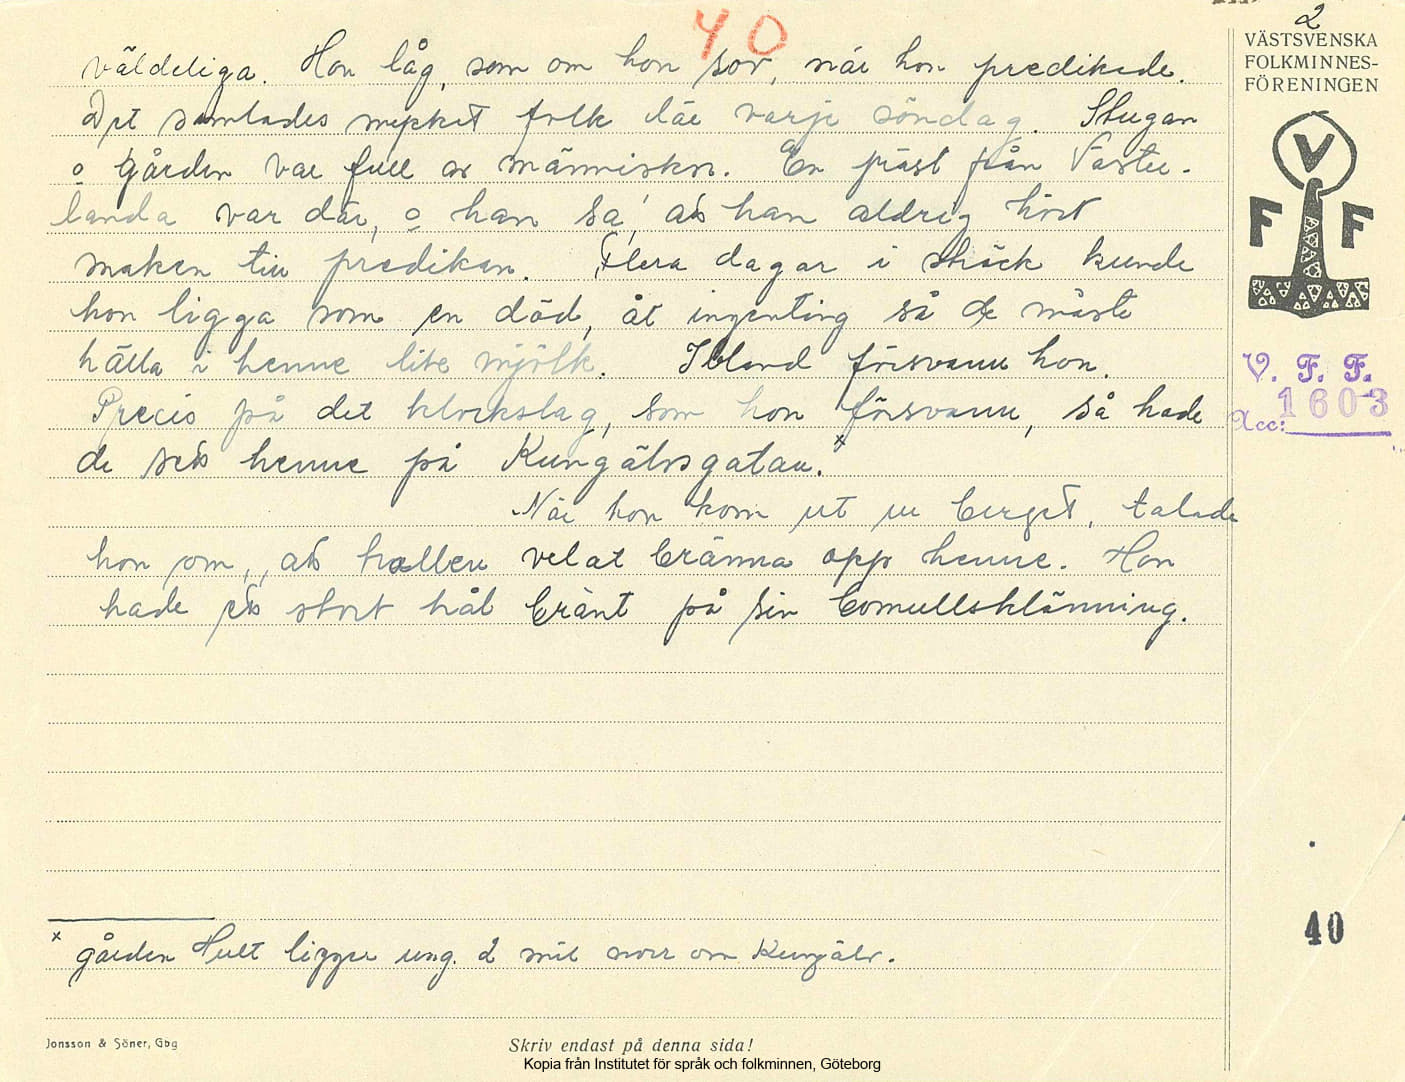 40
2
VÄSTSVENSKA
FOLKMINNES-
FÖRENINGEN
V
F F
V. F. F.
Acc: 1603
väldeliga. Hon låg, som om hon sov, när hon predikade.
Det samlades mycket folk där varje söndag. Stugan
o gården var full av människor. En präst från Väster-
landa var där, o han sa, att han aldrig hört
maken till predikan. Flera dagar i sträck kunde
hon ligga som en död, åt ingenting så de måste
hälla i henne lite mjölk. Ibland försvann hon.
Precis på det klockslag, som hon försvann, så hade
de sett henne på Kungälvsgatan.x
När hon kom ut ur berget, talade
hon om, att trollen velat bränna opp henne. Hon
hade ett stort hål bränt på sin bomullsklänning.
x gården Hult ligger ung. 2 mil norr om Kungälv.
40
Jonsson & Söner, Gbg
Skriv endast på denna sida!
Kopia från Institutet för språk och folkminnen, Göteborg